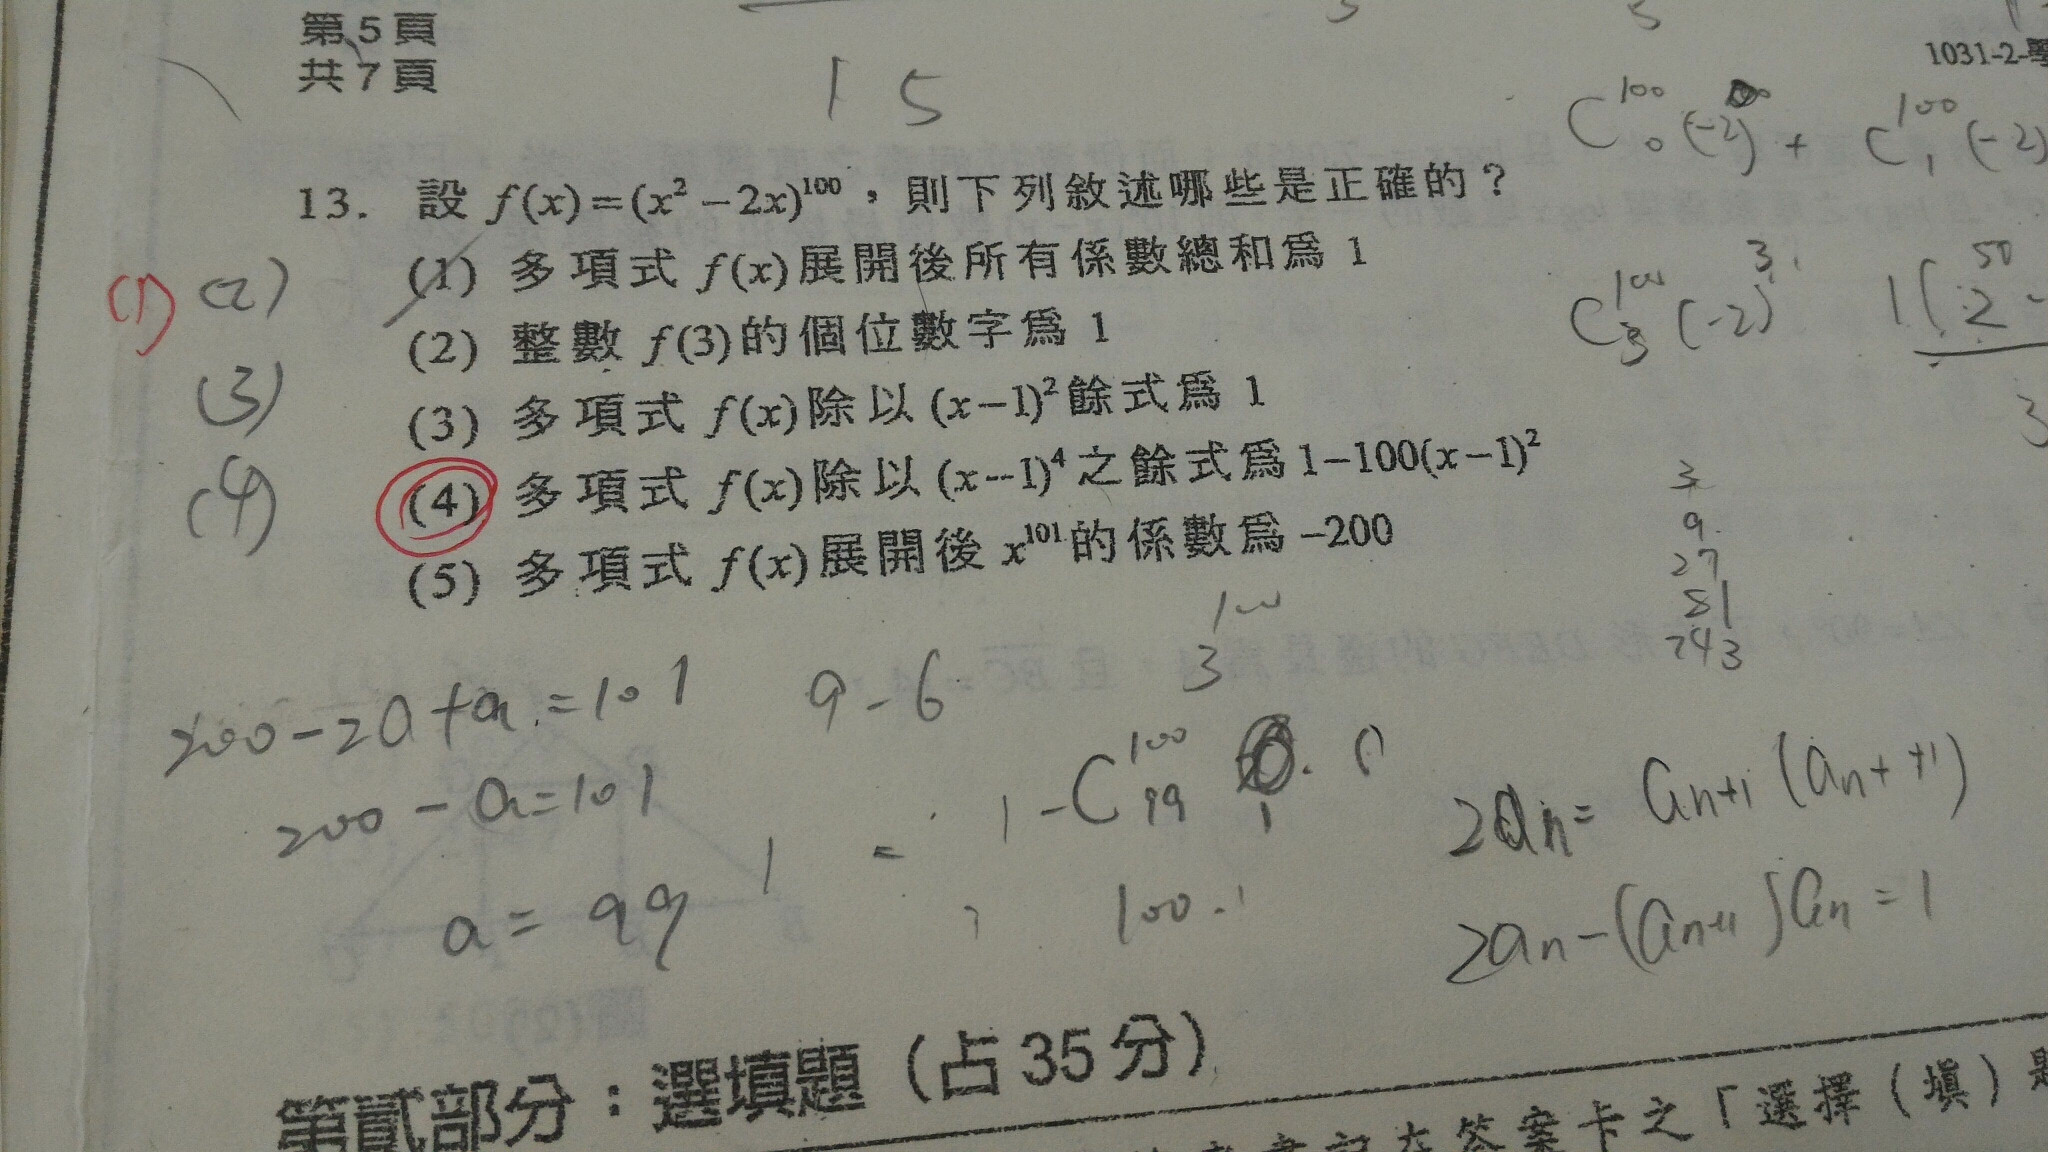 第5頁
共7頁
1031-2-學
15
C 100 0 (-2) + C 100 1 (-2)
13. 設 f(x)=(x²－2x)¹⁰⁰，則下列敘述哪些是正確的？
(1) (2) (1) 多項式 f(x)展開後所有係數總和爲 1
(2) 整數 f(3)的個位數字爲 1
C 100 3 (-2)³
(3) (3) 多項式 f(x)除以 (x－1)²餘式爲 1
(4) (4) 多項式 f(x)除以 (x－1)⁴之餘式爲 1－100(x－1)²
(5) 多項式 f(x)展開後 x¹⁰¹的係數爲 –200
3
9
27
81
243
3¹⁰⁰
200-2a+a=101
9-6
200-a=101
1-C 100 99
a=99
100.1
2an= an+1 (an+1)
2an-(an+1)an=1
第貳部分：選填題（占35分）
答案卡之「選擇（填）題